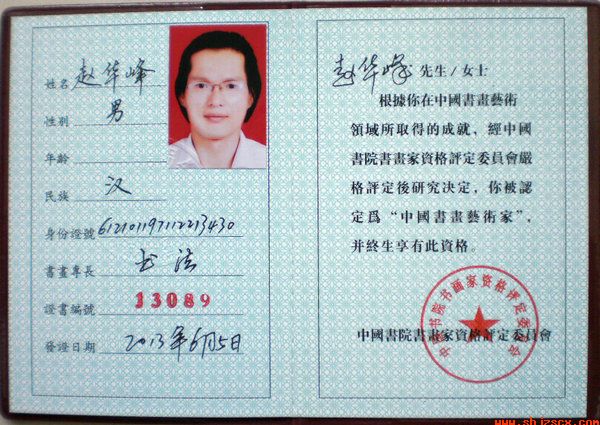 姓名 赵华峰
性別 男
年齡
民族 汉
身份證號 612101197112213430
書畫專長 书法
證書編號 13089
發證日期 2013年6月5日
赵华峰 先生/女士
根據你在中國書畫藝術
領域所取得的成就，經中國
書院書畫家資格評定委員會嚴
格評定後研究決定，你被認
定爲“中國書畫藝術家”，
并終生享有此資格。
中國書院書畫家資格評定委員會
中国书院书画家资格评定委员会
www.shjzscx.com